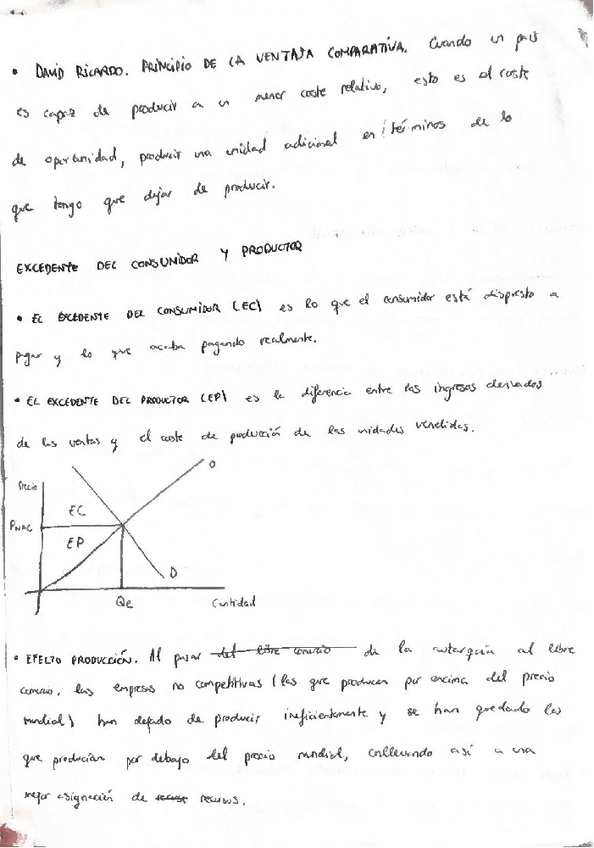 • DAVID RICARDO. PRINCIPIO DE LA VENTAJA COMPARATIVA. Cuando un país
es capaz de producir a un menor coste relativo, esto es el coste
de oportunidad, producir una unidad adicional en términos de lo
que tengo que dejar de producir.
EXCEDENTE DEL CONSUMIDOR Y PRODUCTOR
• EL EXCEDENTE DEL CONSUMIDOR (EC) es lo que el consumidor está dispuesto a
pagar y lo que acaba pagando realmente.
• EL EXCEDENTE DEL PRODUCTOR (EP) es la diferencia entre los ingresos derivados
de las ventas y el coste de producción de las unidades vendidas.
Precio
O
EC
PNAC
EP
D
Qe
Cantidad
• EFECTO PRODUCCIÓN. Al pasar del libre comercio de la autarquía al libre
comercio, las empresas no competitivas (las que producen por encima del precio
mundial) han dejado de producir ineficientemente y se han quedado las
que producían por debajo del precio mundial, conllevando así a una
mejor asignación de recursos.